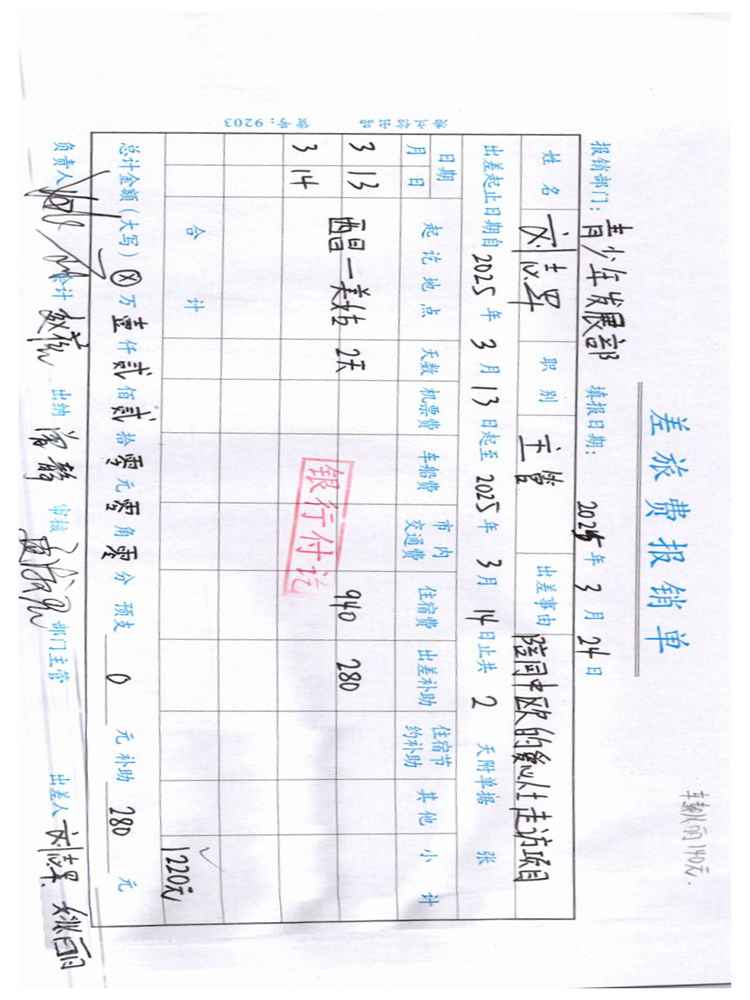 差旅费报销单
报销部门: 青少年发展部 填报日期: 2025 年 3 月 24 日
姓名 刘志昇 职别 主管 出差事由 陪同中欧的 走访项目
出差起止日期自 2025 年 3 月 13 日起至 2025 年 3 月 14 日止共 2 天附单据 张
日期 起讫地点 天数 机票费 车船费 市内交通费 住宿费 出差补助 住宿节约补助 其他 小计
月 日
3 13 西昌—美姑 2天 940 280
3 14
银行付讫
合计 1220元
总计金额(大写) ⊗ 万 壹 仟 贰 佰 贰 拾 零 元 零 角 零 分 预支 0 元 补助 280 元
负责人 会计 出纳 审核 部门主管 出差人 刘志昇
货号:9203